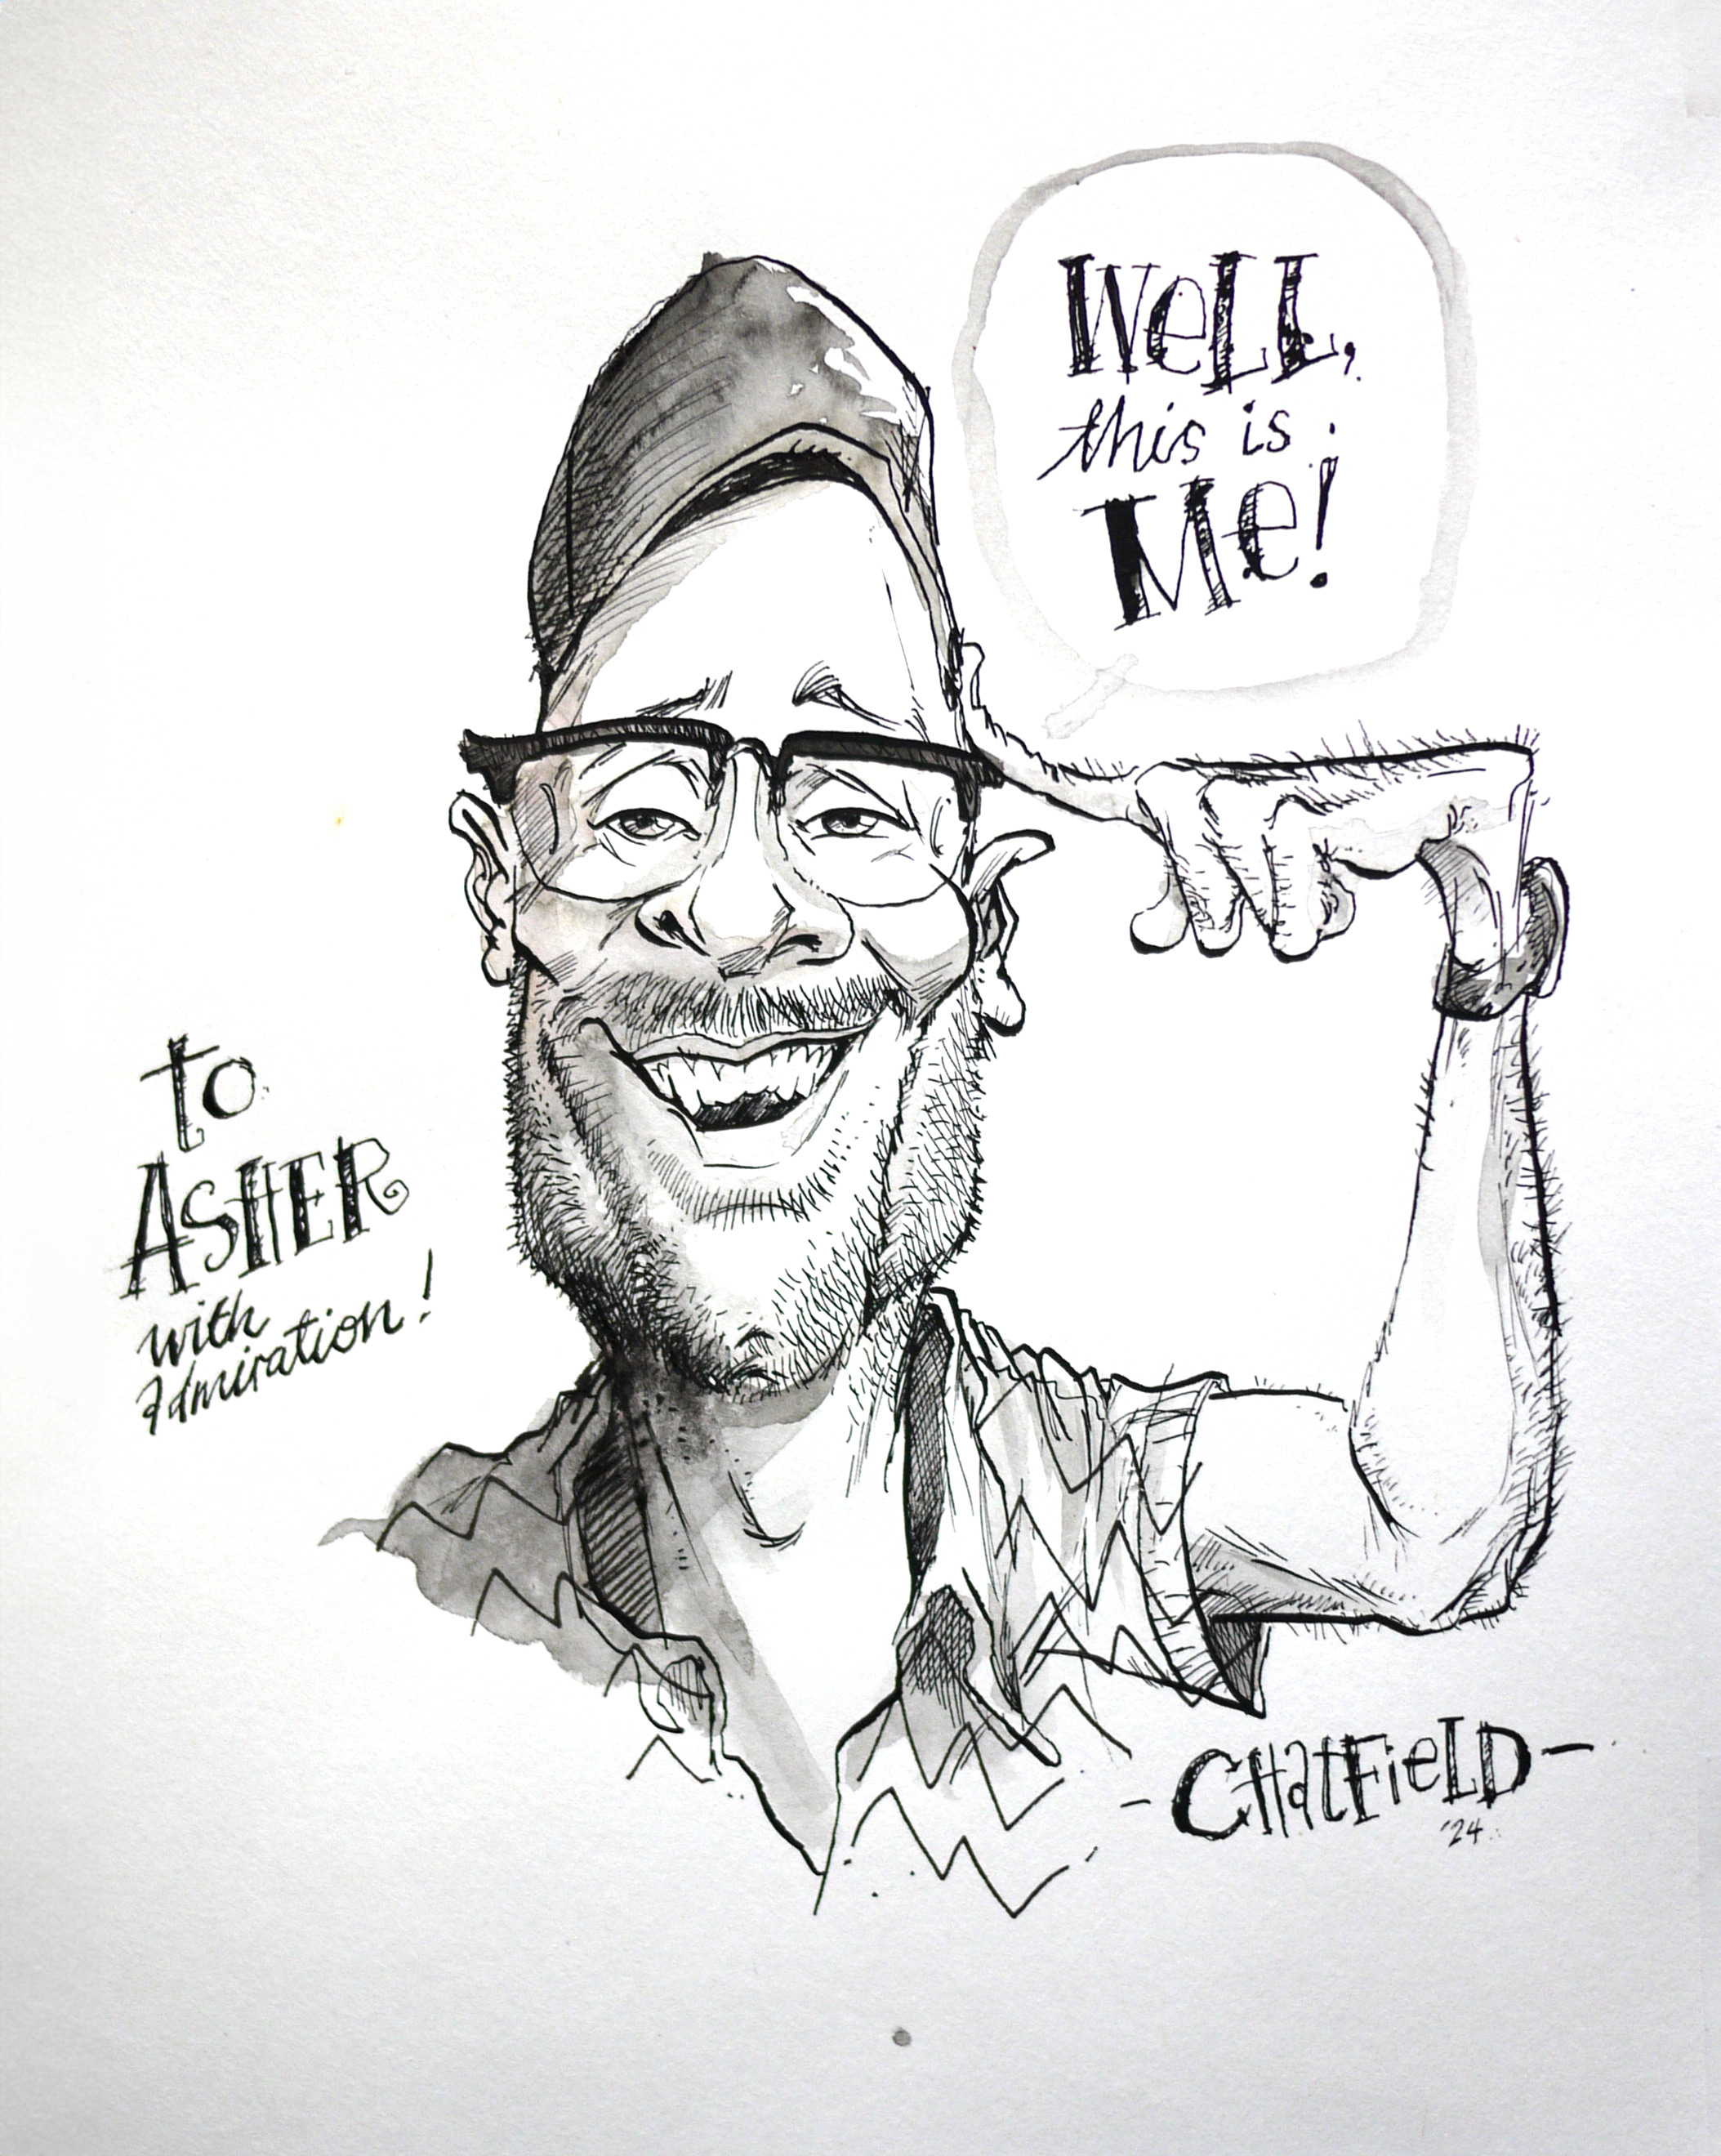 WeLL,
this is
Me!
to
ASHER
with
admiration!
-CHatFieLD-
'24